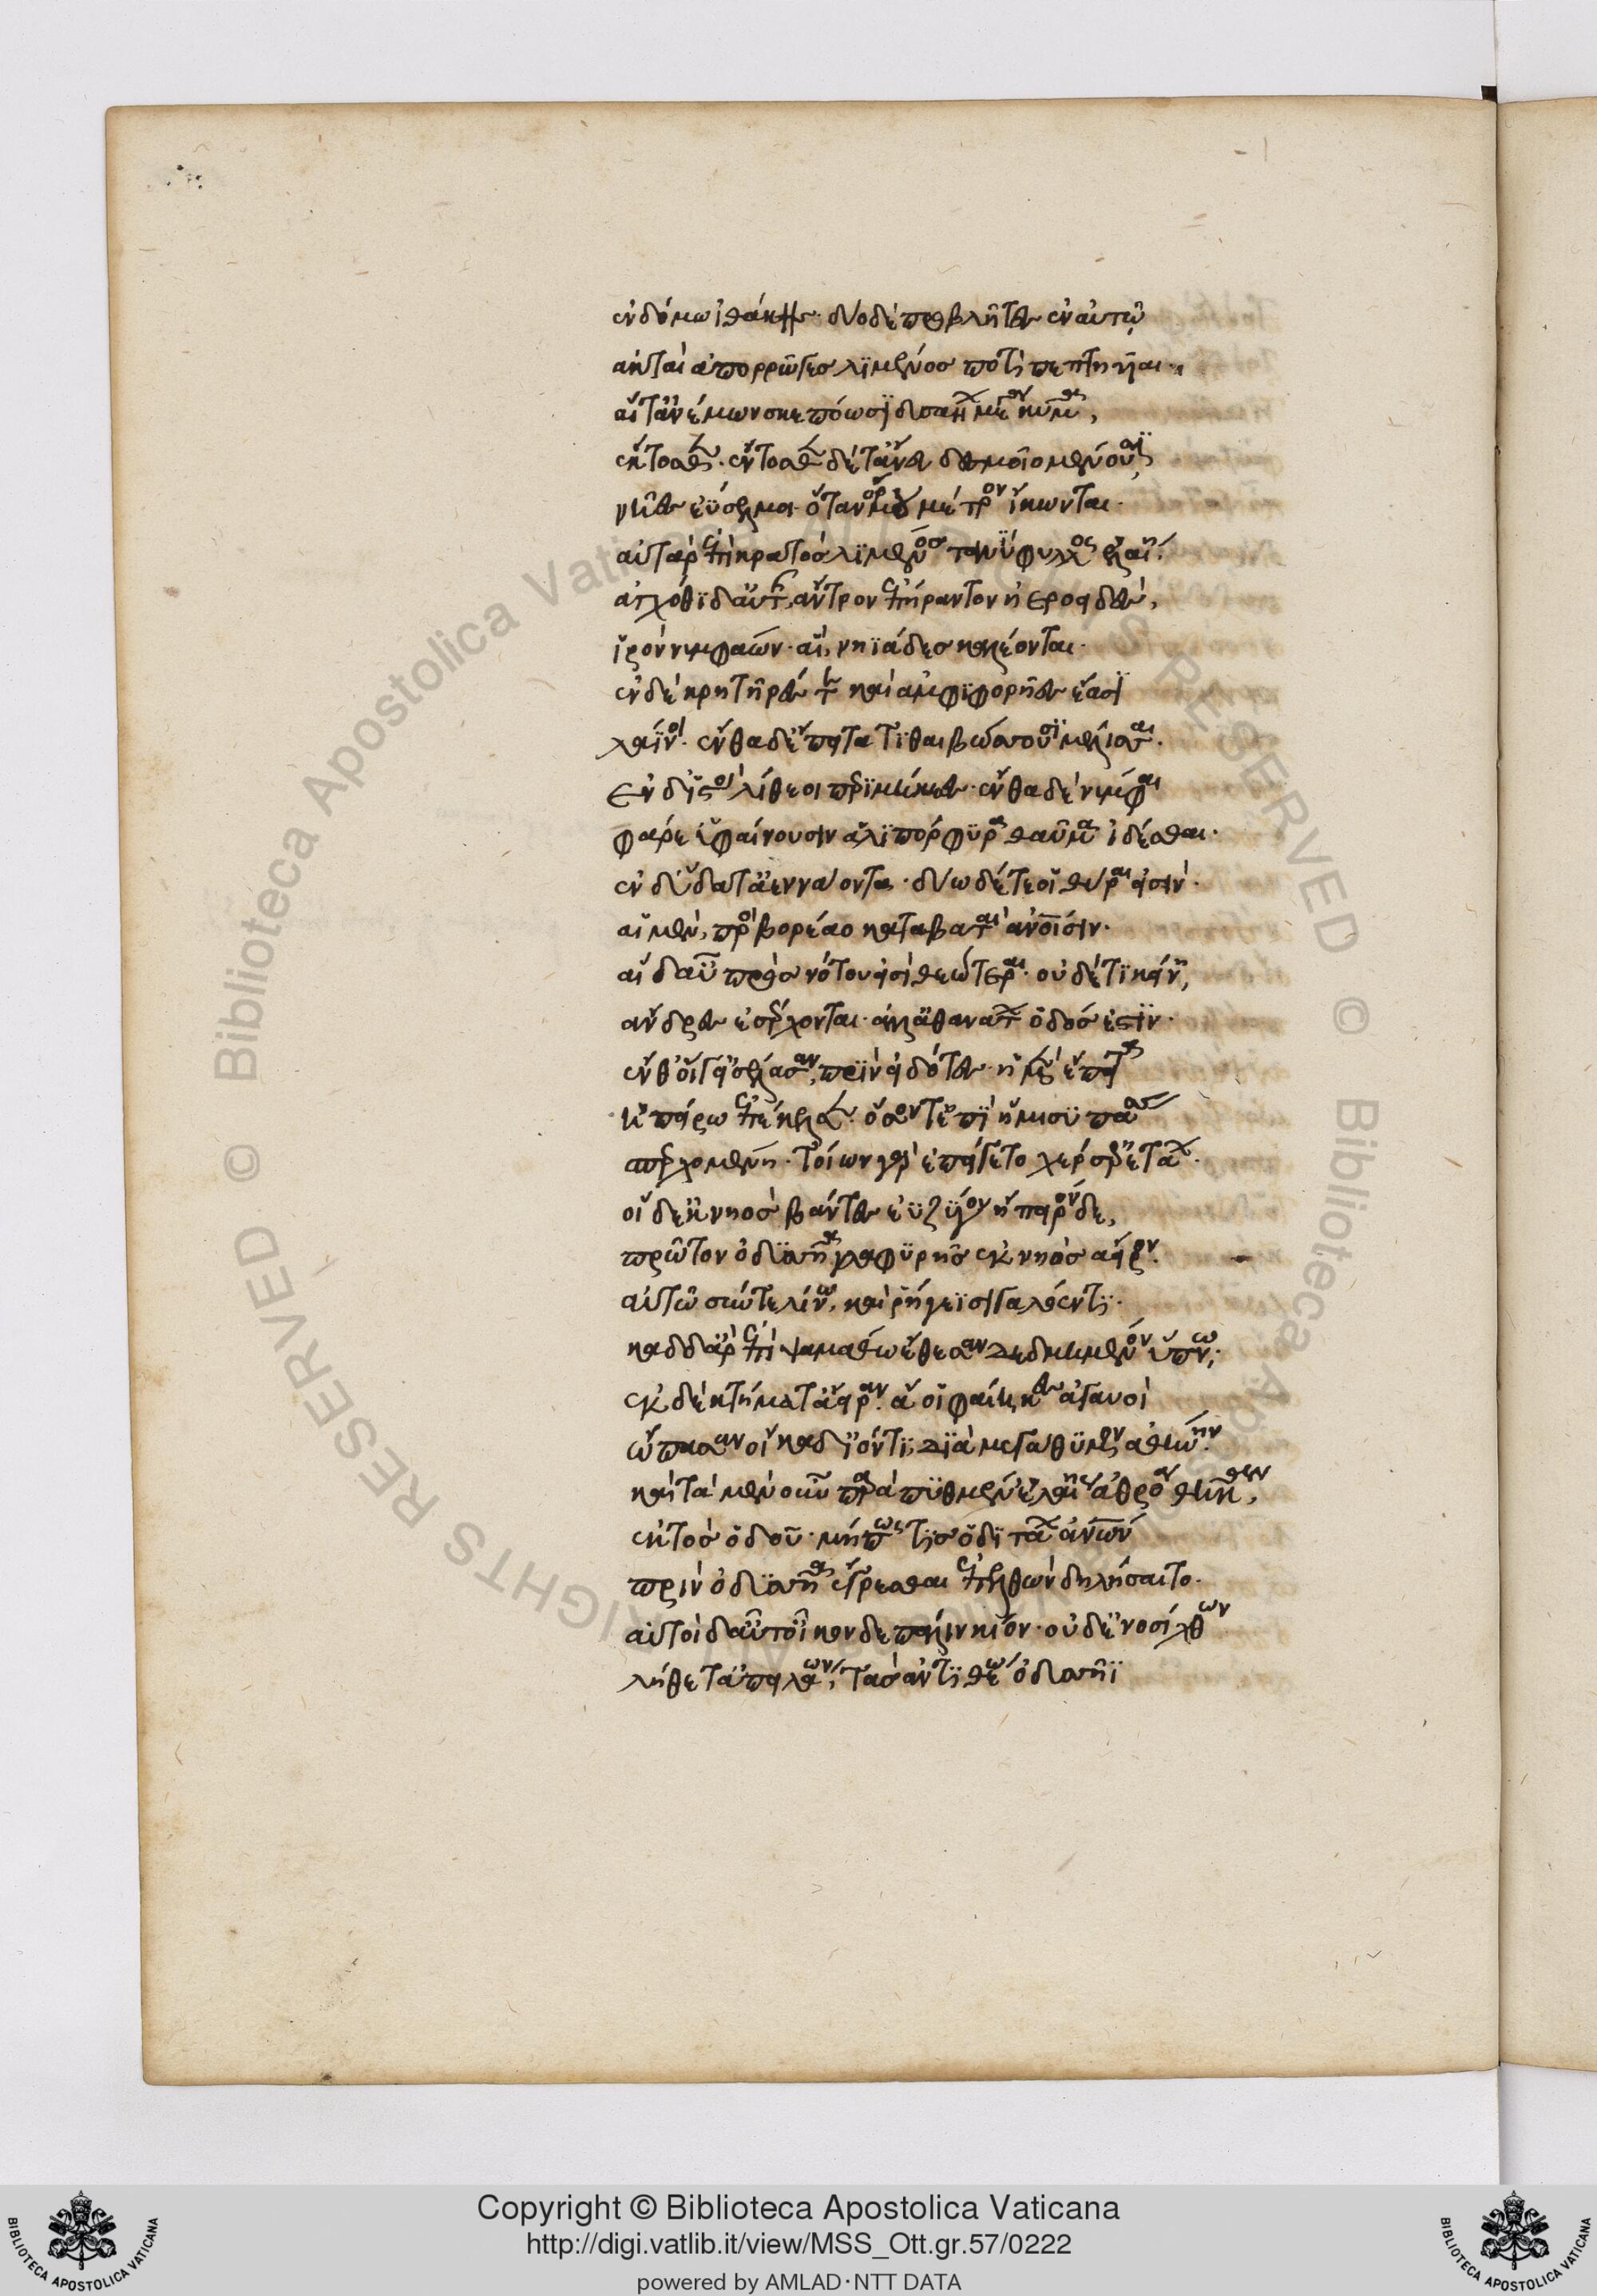 ἐν δήμω ἰθάκης· δύο δὲ προβλῆτες ἐν αὐτῶ
ἀκταὶ ἀπορρῶγες λϊμένος ποτὶ πεπτηυῖαι·
αἵτ' ἀνέμων σκεπόωσϊ δυσαήων μέγα κῦμα,
ἔκτοθεν· ἔντοθεν δέ τ' ἄνευ δεσμοῖο μένουσϊ
νῆες ἐΰσελμοι· ὅτ' ἂν ὅρμου μέτρον ἵκωνται·
αὐτὰρ ἐπὶ κρατὸς λϊμένος τανύφυλλος ἐλαίη·
ἀγχόθϊ δ' αὐτῆς, ἄντρον ἐπήρατον ἠεροειδές,
ἱρὸν νυμφάων· αἳ, νηϊάδες καλέονται·
ἐν δὲ κρητῆρές τε καὶ ἀμφιφορῆες ἔασϊ
λάϊνοι· ἔνθα δ' ἔπειτα τϊθαιβώσσουσϊ μέλισσαι·
ἐν δ' ἱστοὶ λίθεοι περϊμήκεες· ἔνθα δὲ νύμφαι
φάρε' ὑφαίνουσιν ἁλϊπόρφϋρα θαῦμα ἰδέσθαι·
ἐν δ' ὕδατ' ἀενάοντα· δύω δέ τέ οἱ θύραι εἰσὶν·
αἱ μὲν, πρὸς βορέαο καταβαταὶ ἀνθρώποισιν·
αἱ δ' αὖ πρὸς νότου εἰσὶ θεώτεραι· οὐδέ τϊ κείνη,
ἄνδρες ἐσέρχονται· ἀλλ' ἀθανάτων ὁδός ἐστϊν·
ἔνθ' οἵγ' εἰσέλασαν, πρὶν εἰδότες· ἡ μὲν ἔπειτα
ἠπείρω ἐπέκελσεν· ὅσον τ' ἐπὶ ἥμισυ πάσης
σπερχομένη· τοίων γὰρ ἐπείγετο χέρσ' ἐρετάων·
οἱ δ' ἐκ νηὸς βάντες ἐϋζύγου ἤπειρον δὲ,
πρῶτον ὀδυσσῆα γλαφϋρῆς ἐκ νηὸς ἄειραν·
αὐτῶ σύν τε λίνω, καὶ ῥήγεϊ σιγαλόεντϊ·
καδδ' ἄρ' ἐπὶ ψαμάθω ἔθεσαν δεδμημένον ὕπνω·
ἐκ δὲ κτήματ' ἄειραν· ἅ οἱ φαίηκες ἀγαυοὶ
ὤπασαν οἴκαδ' ἰόντϊ, διὰ μεγάθϋμον ἀθήνην·
καὶ τὰ μὲν οὖν παρὰ πϋθμέν' ἐλαίης ἀθρόα θῆκαν,
ἐκτὸς ὁδοῦ· μή πως τϊς ὁδϊτάων ἀνθρώπων
πρὶν ὀδυσσῆα ἔγρεσθαι ἐπελθὼν δηλήσαιτο·
αὐτοὶ δ' αὖτ' οἶκον δὲ πάλιν κίον· οὐδ' ἐνοσίχθων
λήθετ' ἀπειλάων, τὰς ἀντϊθέω ὀδυσσῆϊ
Copyright © Biblioteca Apostolica Vaticana
http://digi.vatlib.it/view/MSS_Ott.gr.57/0222
powered by AMLAD·NTT DATA